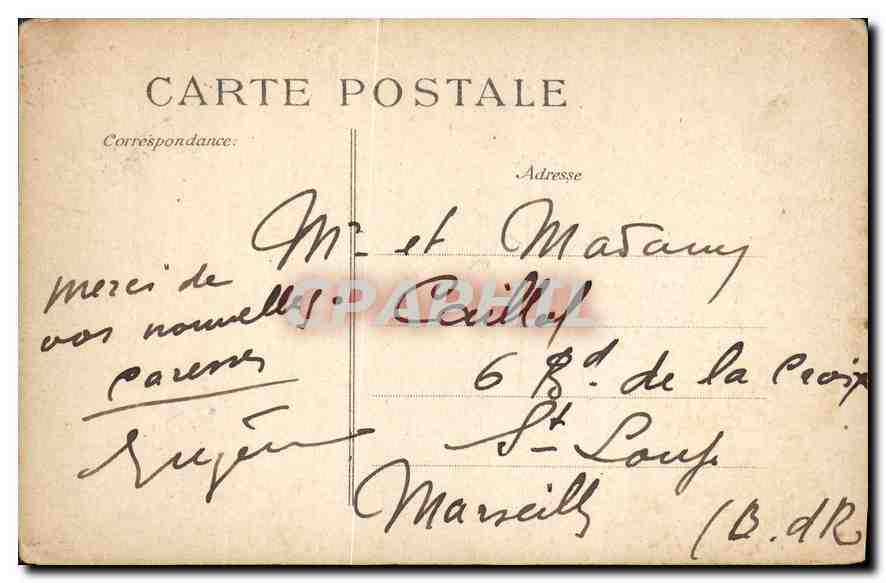 CARTE POSTALE
Correspondance:
Adresse
merci de
vos nouvelles.
caresses
Eugène
Mr et Madame
Caillol
6 Bd. de la Croix
St Loup
Marseille
(B. d R
CPAPHIL